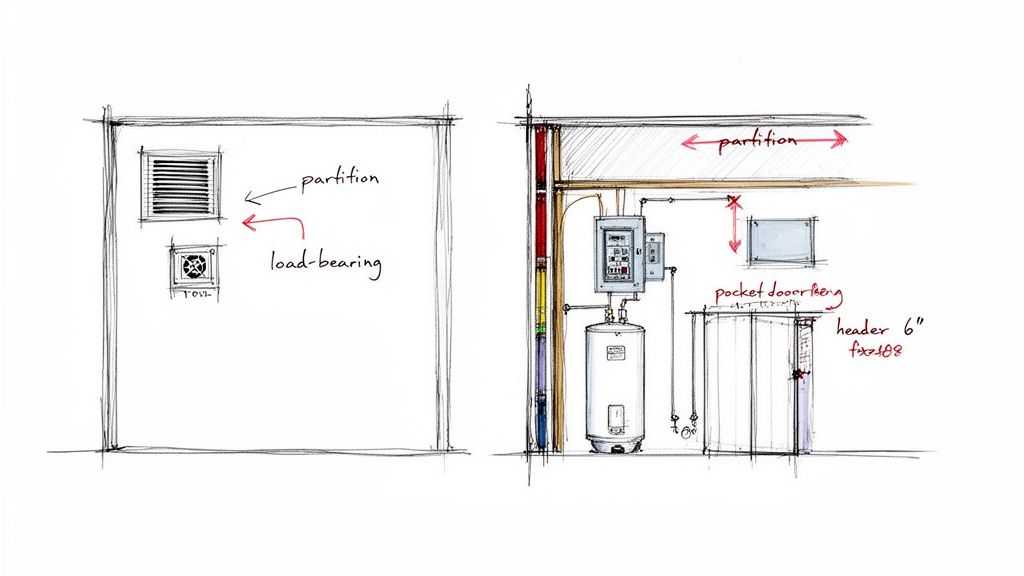 partition
load-bearing
partition
pocket door
header 6"